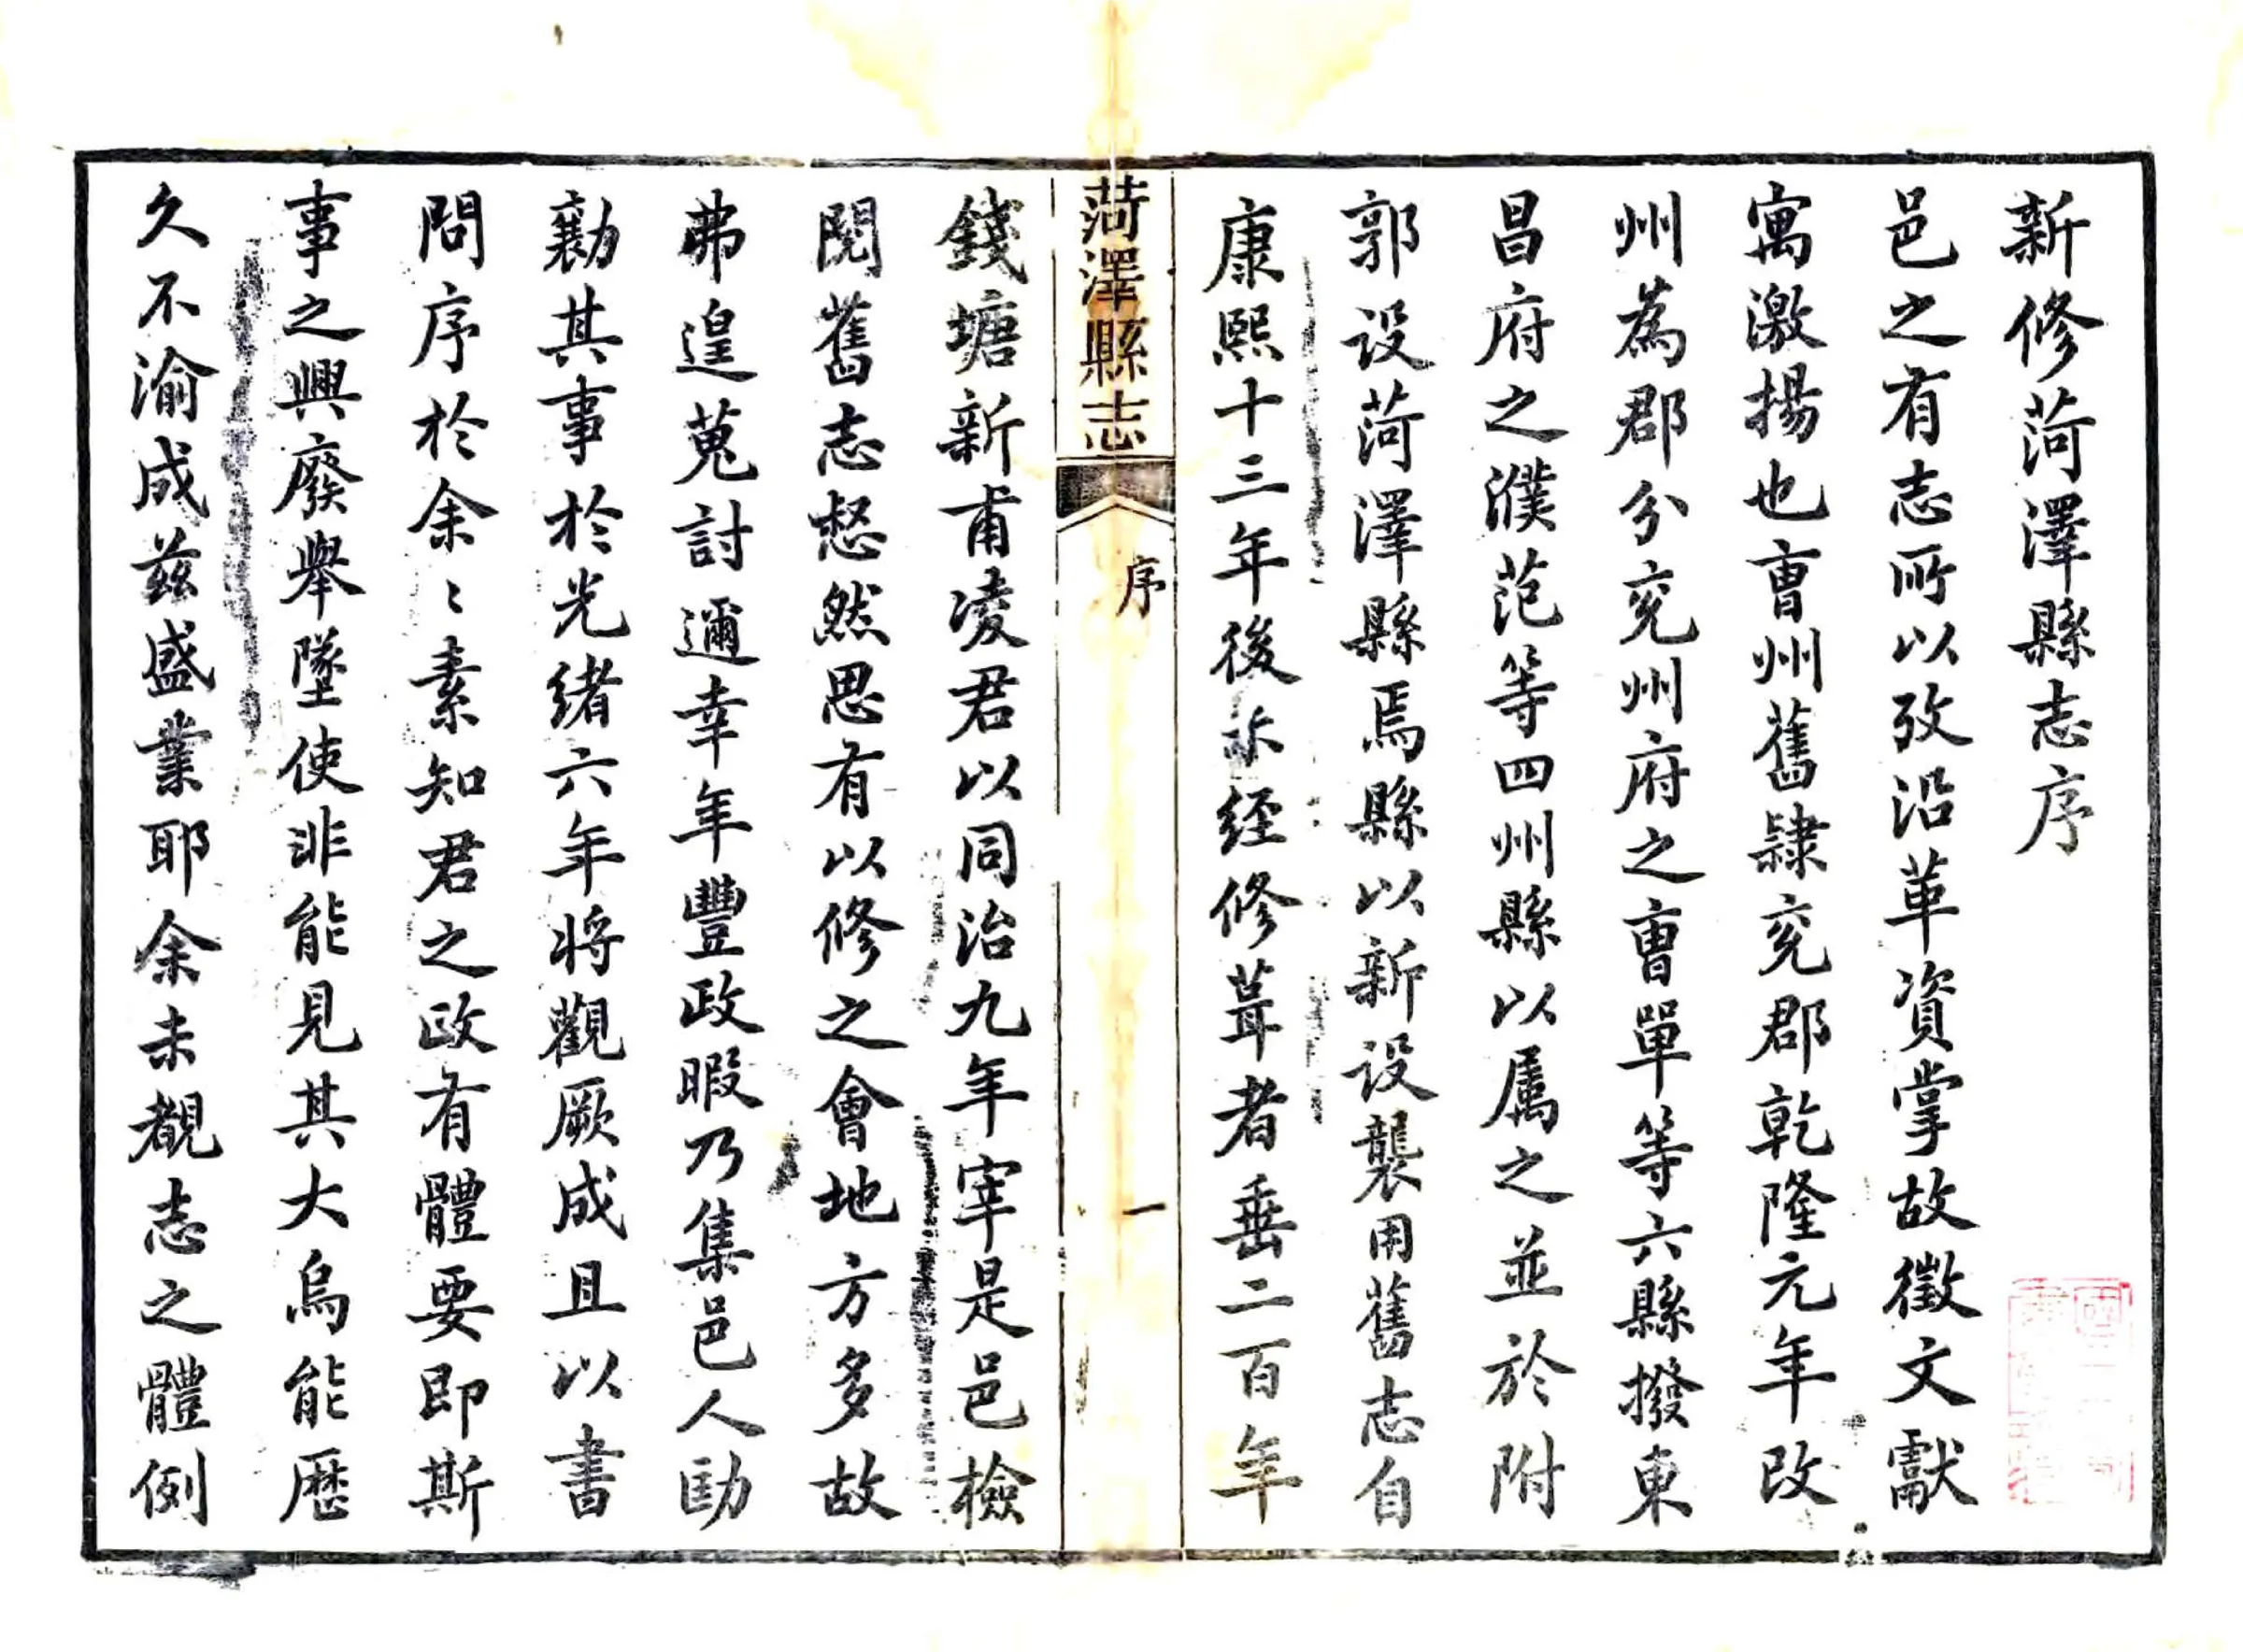 新修菏澤縣志序
邑之有志所以攷沿革資掌故徵文獻
寓激揚也曹州舊隸兖郡乾隆元年改
州為郡分兖州府之曹單等六縣撥東
昌府之濮范等四州縣以屬之並於附
郭设菏澤縣焉縣以新设襲用舊志自
康熙十三年後未经修葺者垂二百年
菏澤縣志
序
一
錢塘新甫凌君以同治九年宰是邑檢
閱舊志惄然思有以修之會地方多故
弗遑蒐討邇幸年豐政暇乃集邑人劻
勷其事於光緒六年将觀厥成且以書
問序於余〻素知君之政有體要即斯
事之興廢舉墜使非能見其大烏能歷
久不渝成兹盛業耶余未覩志之體例